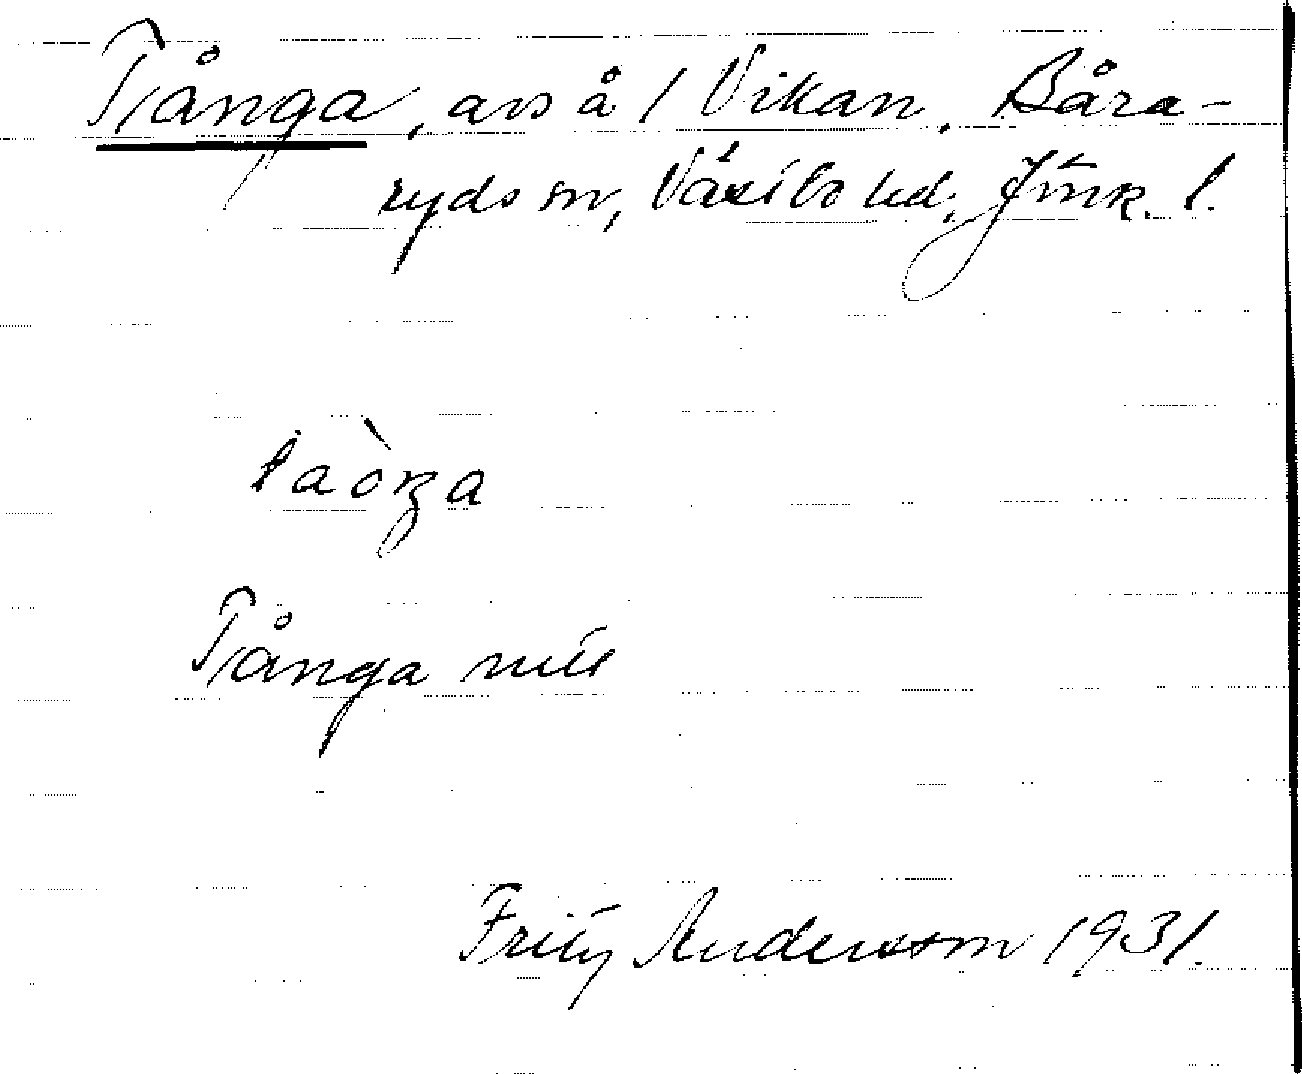 Tånga, avs å 1 Vikan, Båra-
ryds sn, Västbo hd, Jönk. l.
taòŋa
Tånga mÿr
Fritz Andersson 1931.